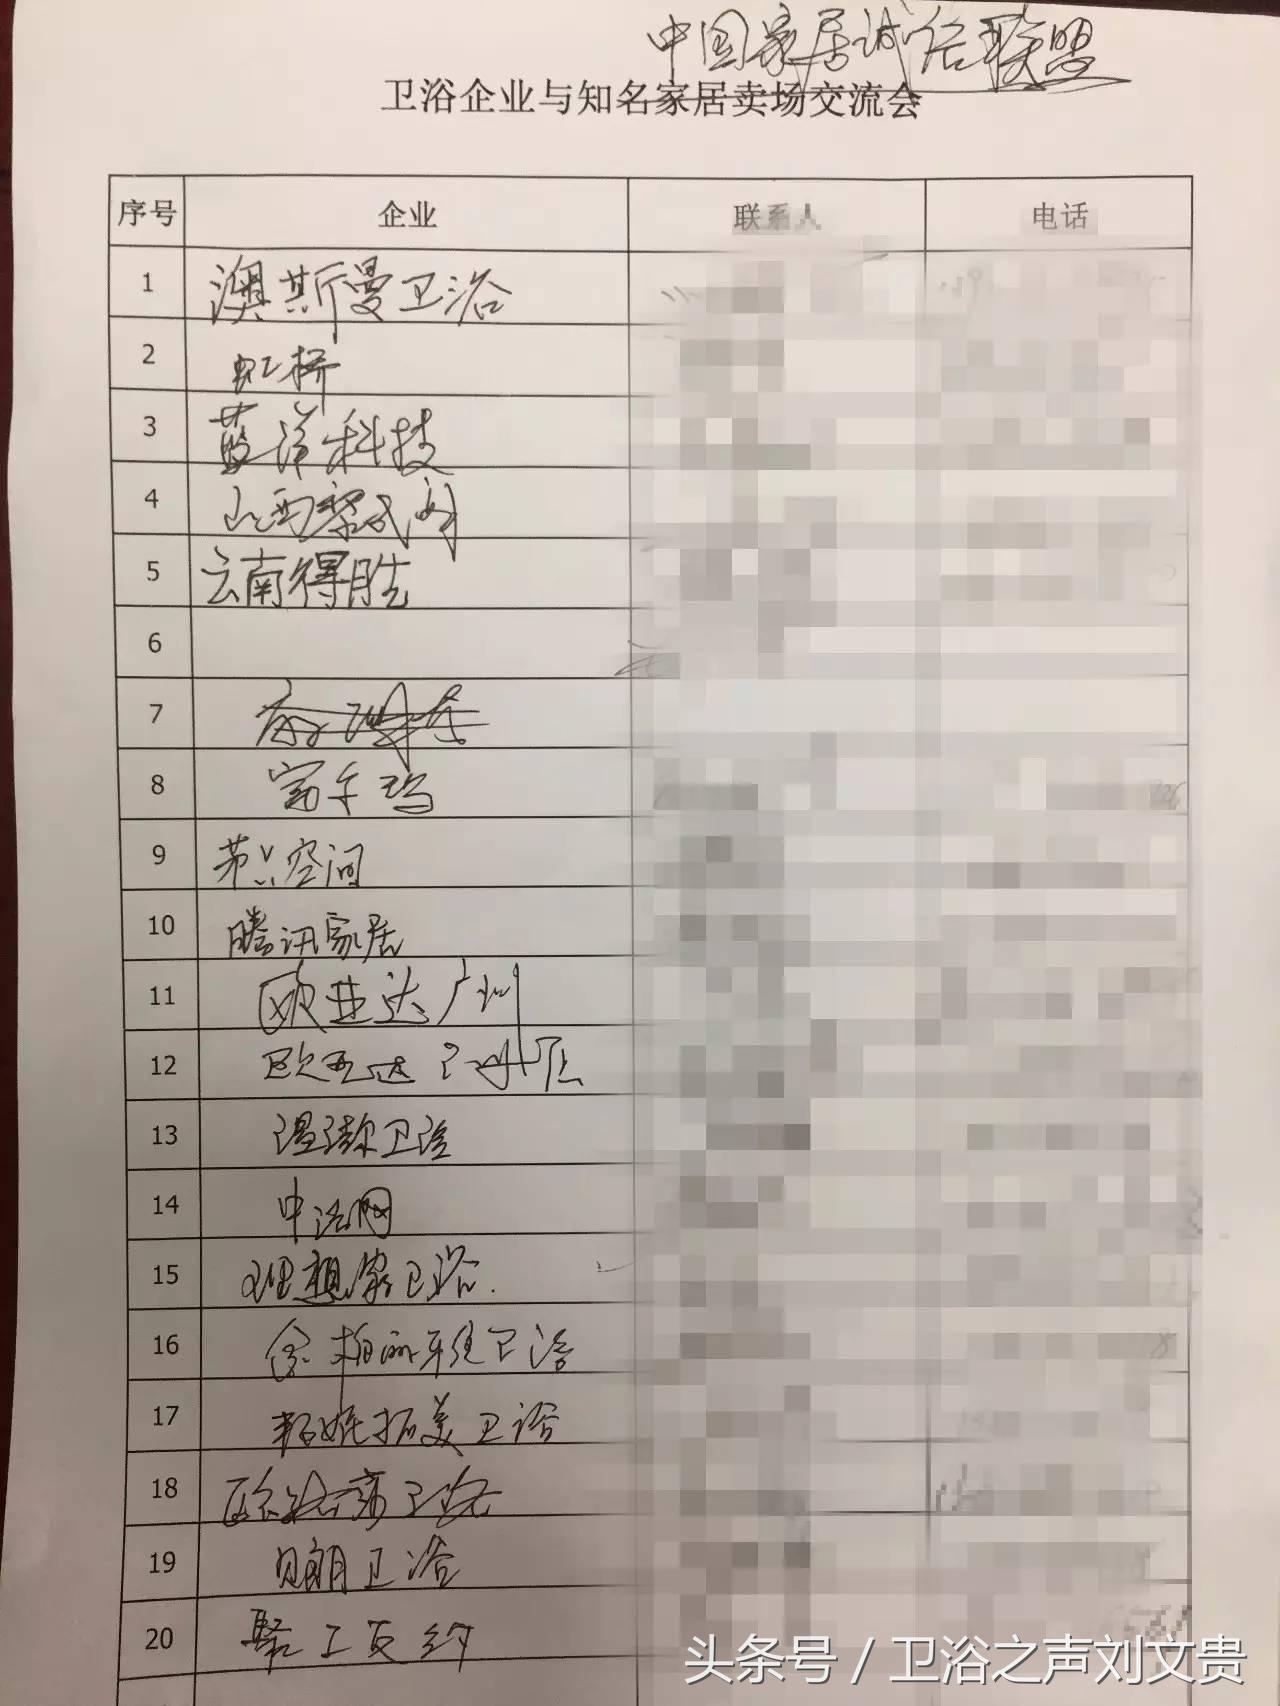 中国家居诚信联盟
卫浴企业与知名家居卖场交流会
序号 企业 联系人 电话
1 澳斯曼卫浴
2 虹桥
3 蓝洋科技
4 山西黎氏阁
5 云南得胜
6
7
8 富千玛
9 第六空间
10 腾讯家居
11 欧亚达广州
12 欧亚达
13 温澍卫浴
14 中洁网
15 理想家卫浴
16 卫浴
17 卫浴
18 卫浴
19 贝朗卫浴
20
头条号 / 卫浴之声刘文贵